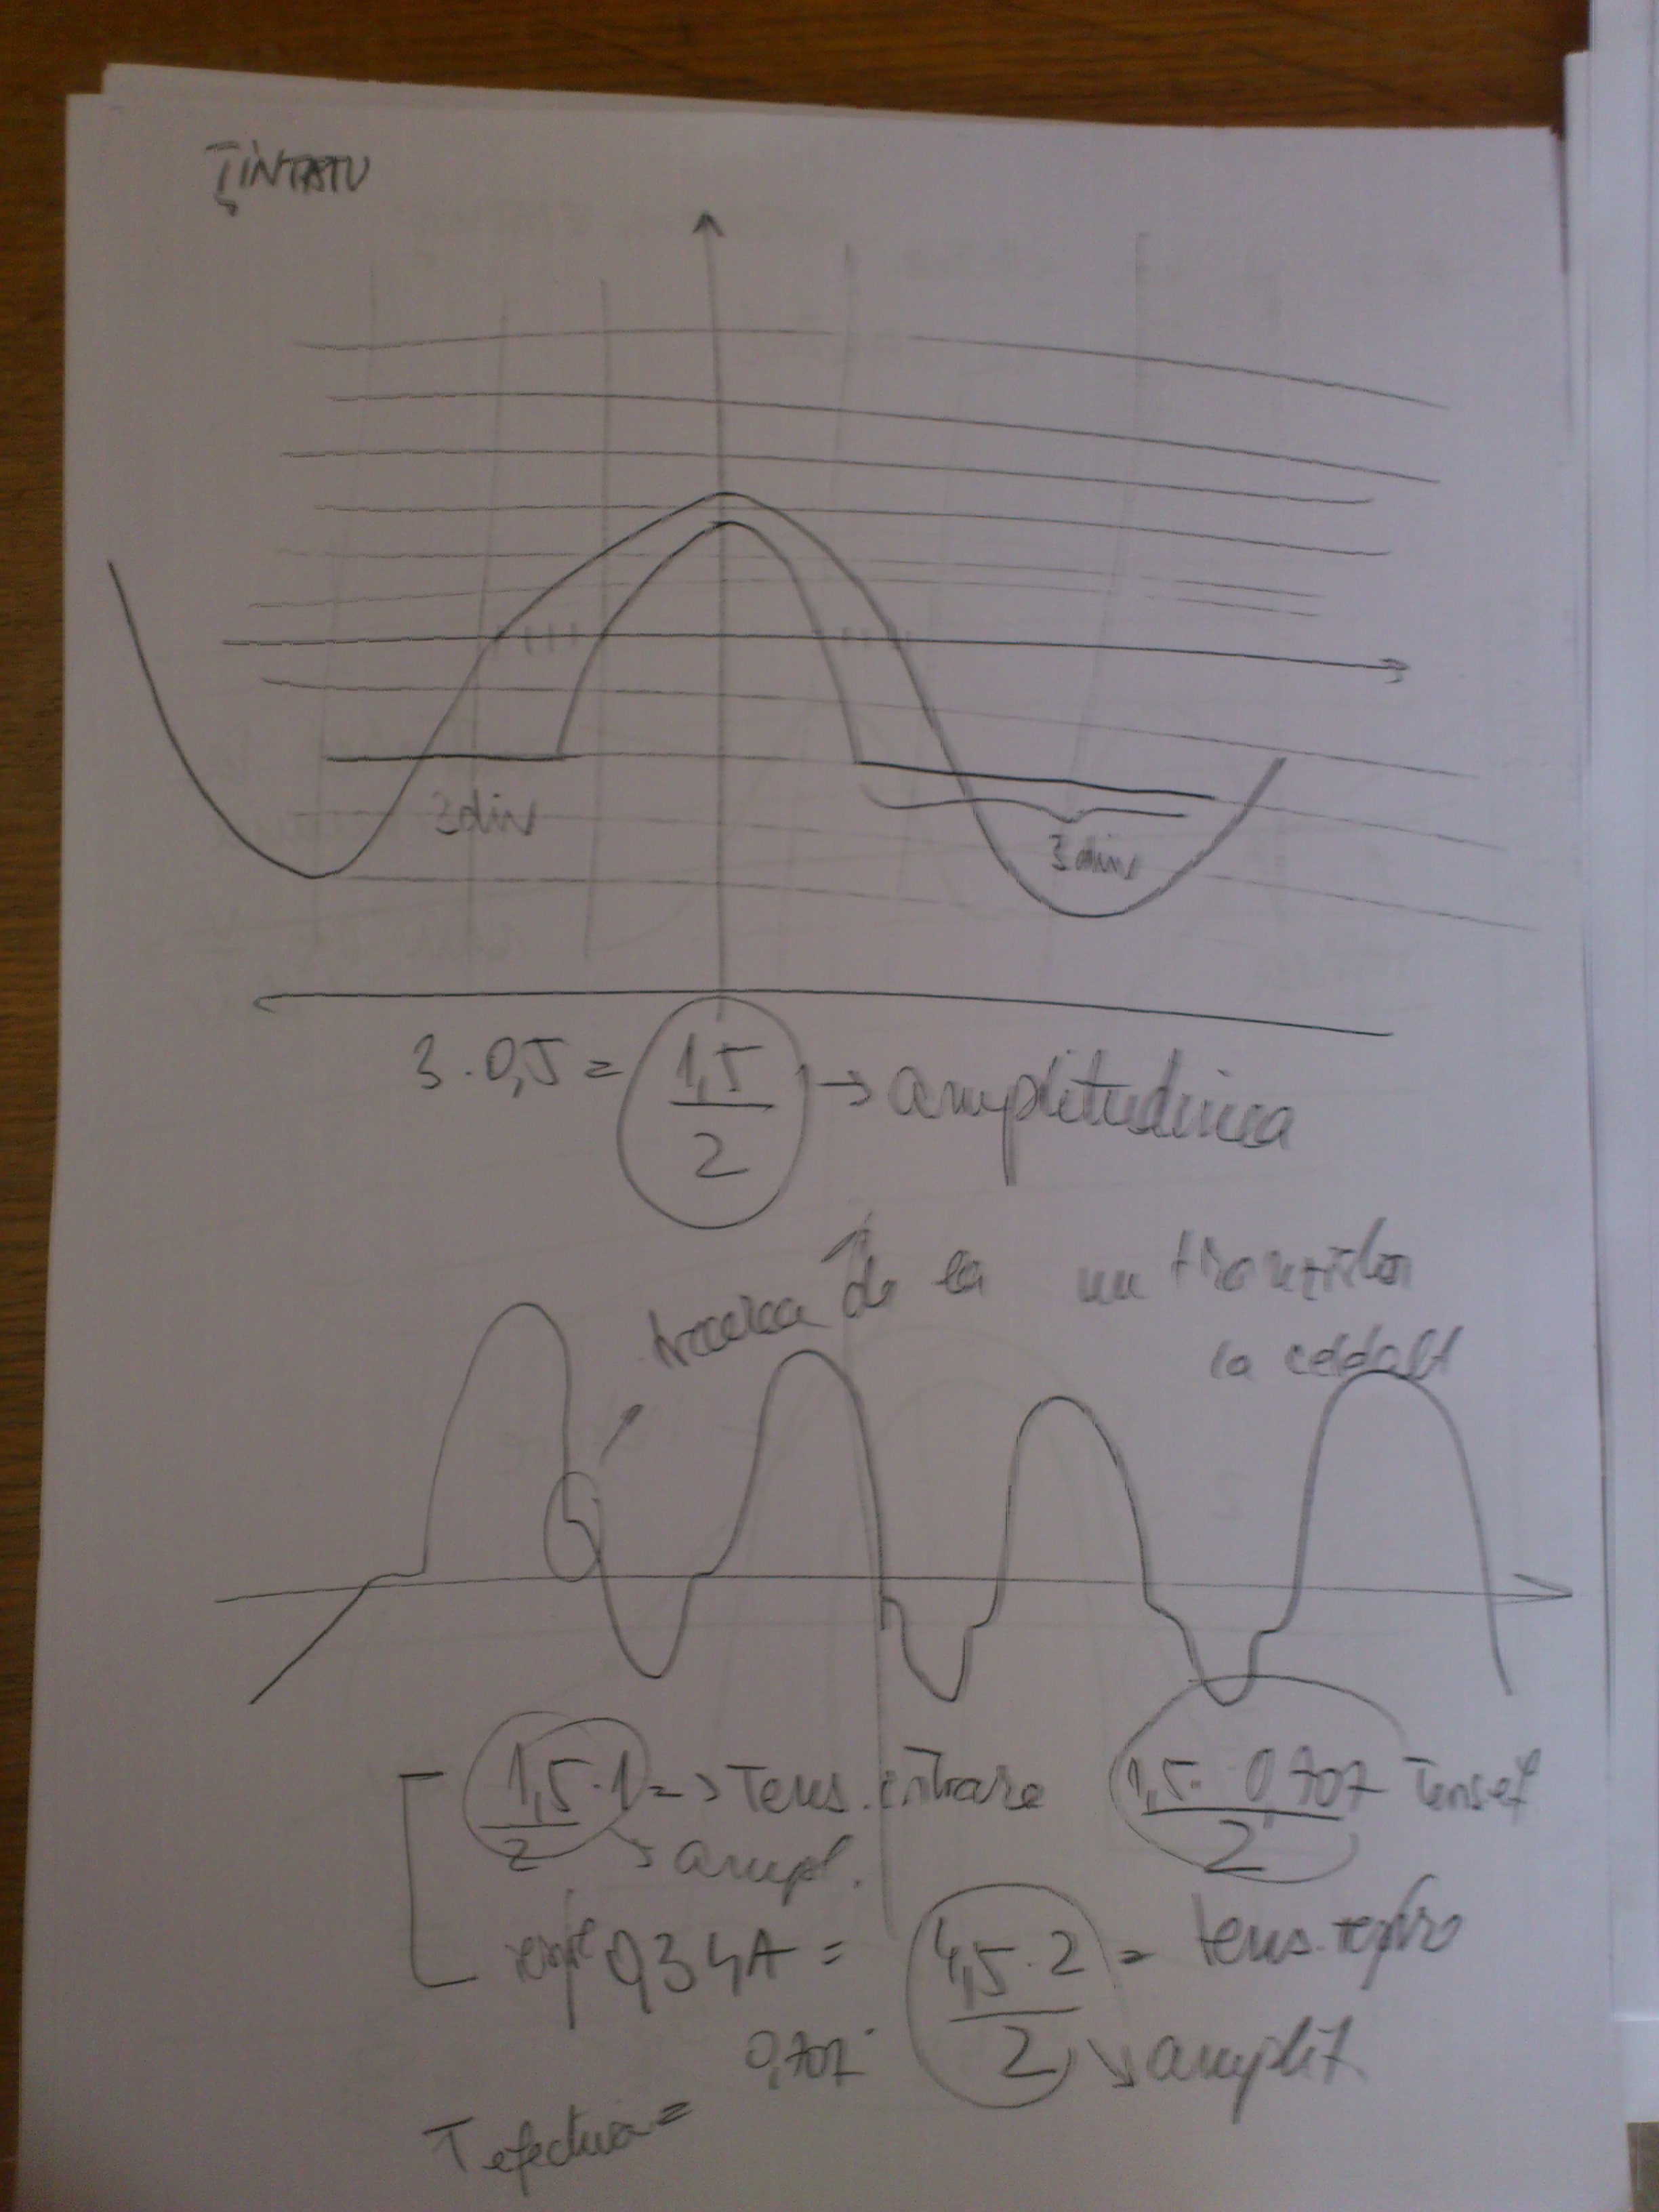 ȚINTATU
3div
3 div
3 . 0,5 = 1,5 / 2 → amplitudinea
trecerea de la un tranzistor
la celdalt
1,5 . 1 / 2 => Tens. intrare
→ ampl.
1,5 . 0,707 / 2 Tens ef
0,34A = 4,5 . 2 / 2 = tens.
0,707 . → amplit
T efectiva =